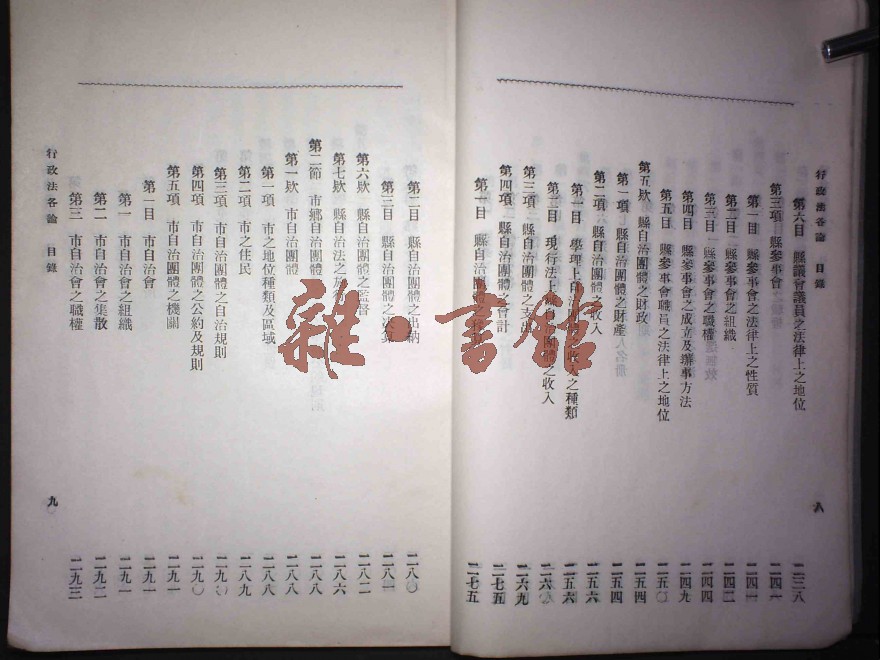 行政法各論 目錄
第六目 縣議會議員之法律上之地位 二三八
第三項 縣參事會 二四一
第一目 縣參事會之法律上之性質 二四一
第二目 縣參事會之組織 二四二
第三目 縣參事會之職權 二四四
第四目 縣參事會之成立及辦事方法 二四九
第五目 縣參事會職員之法律上之地位 二五〇
第五欵 縣自治團體之財政 二五四
第一項 縣自治團體之財產 二五四
第二項 縣自治團體之收入 二五六
第一目 學理上自治 收入之種類 二五六
第二目 現行法上縣自治團體之收入 二六〇
第三項 縣自治團體之支出 二六九
第四項 縣自治團體之會計 二七五
第一目 縣自治團體之 二七五
八
行政法各論 目錄
第二目 縣自治團體之出納 二八〇
第三目 縣自治團體之 二八一
第六欵 縣自治團體之監督 二八二
第七欵 縣自治法之 二八六
第二節 市鄉自治團體 二八八
第一欵 市自治團體 二八八
第一項 市之地位種類及區域 二八八
第二項 市之住民 二八九
第三項 市自治團體之自治規則 二九〇
第四項 市自治團體之公約及規則 二九〇
第五項 市自治團體之機關 二九一
第一目 市自治會 二九一
第一 市自治會之組織 二九一
第二 市自治會之集散 二九二
第三 市自治會之職權 二九三
九
雜·書館